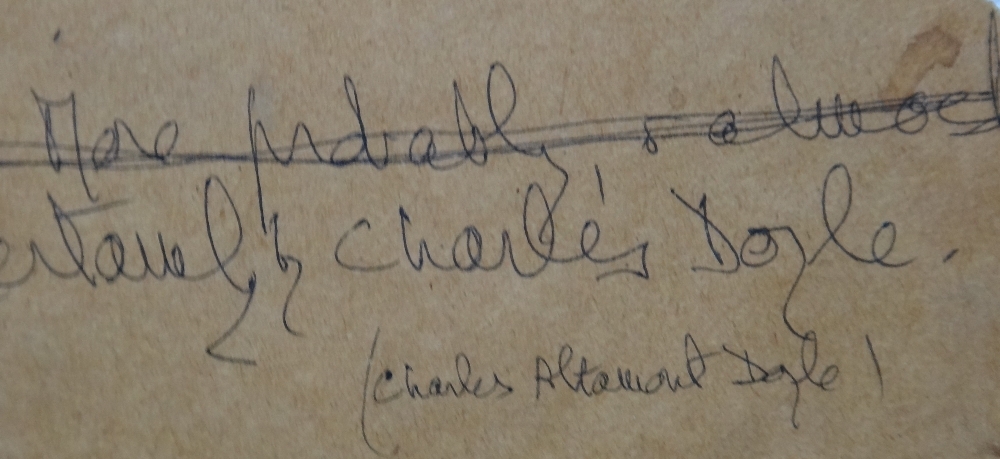 More probably & almost
ertainly by Charles Doyle.
(Charles Altamont Doyle)